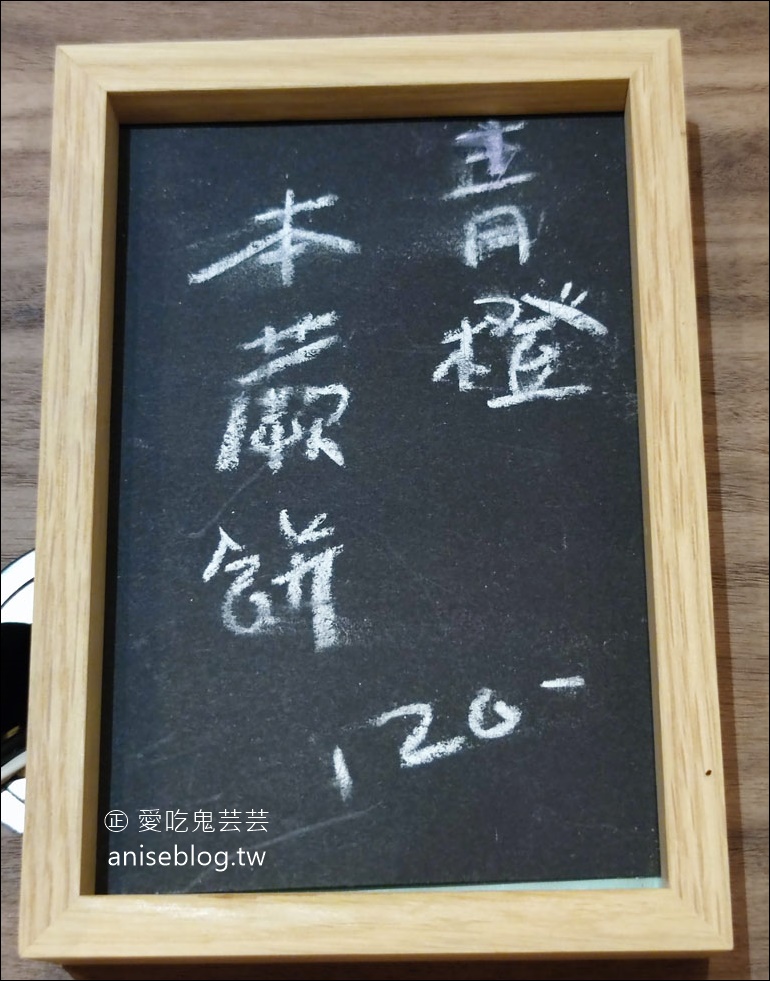 青橙
本蕨餅
120-
㊣ 愛吃鬼芸芸
aniseblog.tw